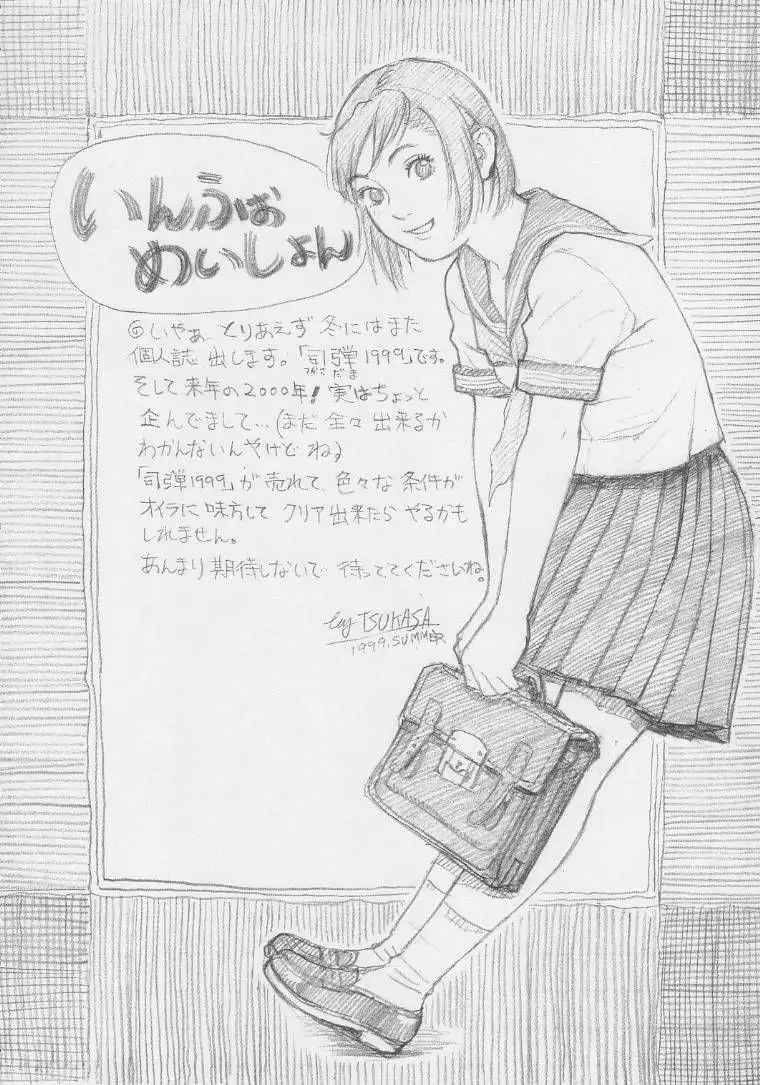 いんふぉ
めいしょん
◎いやぁ とりあえず 冬にはまた
個人誌 出します。「司弾1999」です。
つかさ だま
そして 来年の2000年! 実はちょっと
企んでまして…(まだ 全々 出来るか
わかんないんやけど ね)
「司弾1999」が 売れて、色々な 条件が
オイラに 味方して クリア 出来たら やるかも
しれません。
あんまり 期待しないで 待っててくださいね。
by TSUKASA
1999. SUMMER